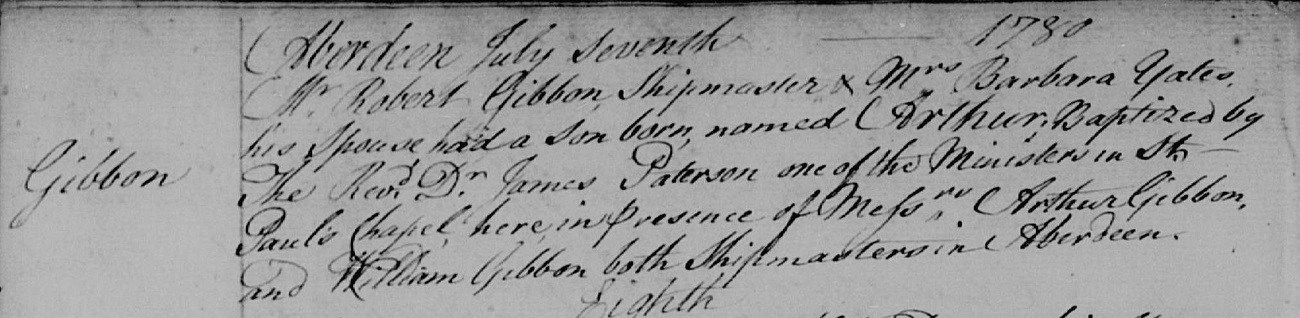 Aberdeen July Seventh — 1780
Gibbon
Mr. Robert Gibbon Shipmaster & Mrs Barbara Yates.
his Spouse had a Son born, named Arthur, Baptized by
The Revd. Dr. James Paterson one of the Ministers in St. —
Paul's Chapel, here, in presence of Messrs. Arthur Gibbon,
and William Gibbon both Shipmasters in Aberdeen.
Eighth